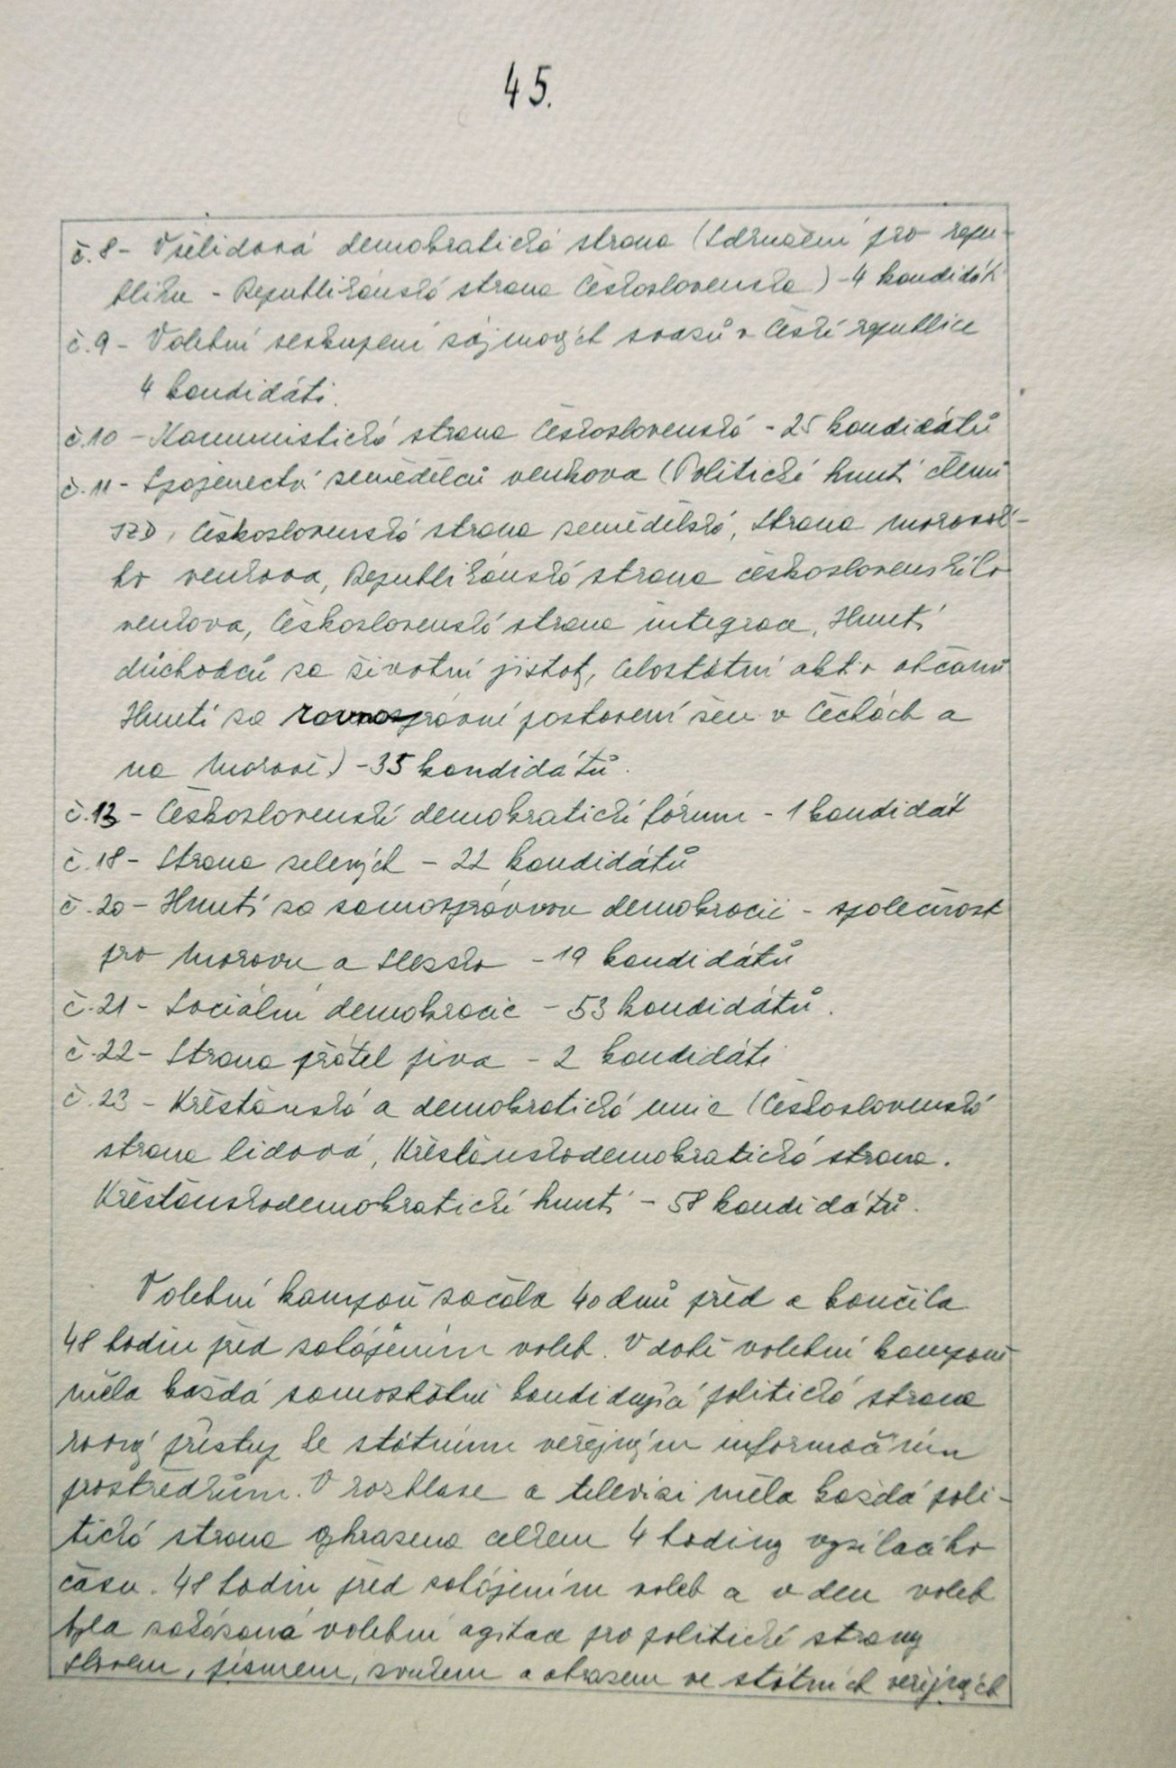 45.
č.8 - Všelidová demokratická strana (Sdružení pro repu-
bliku - Republikánská strana Československa) - 4 kandidáti
č.9 - Volební seskupení zájmových svazů v České republice
4 kandidáti.
č.10 - Komunistická strana Československá - 25 kandidátů
č.11 - Spojenectví zemědělců venkova (Politické hnutí členů
JZD, Československá strana zemědělská, Strana moravské-
ho venkova, Republikánská strana československého
venkova, Československá strana integrace, Hnutí
důchodců za životní jistoty, Celostátní aktiv občanů
Hnutí za rovnoprávní postavení žen v Čechách a
na Moravě) - 35 kandidátů.
č.13 - Československé demokratické fórum - 1 kandidát
č.18 - Strana zelených - 22 kandidátů
č.20 - Hnutí za samosprávnou demokracii - společnost
pro Moravu a Slezsko - 19 kandidátů
č.21 - Sociální demokracie - 53 kandidátů.
č.22 - Strana přátel piva - 2 kandidáti
č.23 - Křesťánská a demokratická unie (Československá
strana lidová, Křesťánskodemokratická strana.
Křesťánskodemokratické hnutí - 58 kandidátů.
Volební kampaň začala 40 dnů před a končila
48 hodin před zahájením voleb. V době volební kampaně
měla každá samostatně kandidující politická strana
rovný přístup ke státním veřejným informačním
prostředkům. V rozhlase a televizi měla každá poli-
tická strana vyhrazena celkem 4 hodiny vysílacího
času. 48 hodin před zahájením voleb a v den voleb
byla zakázaná volební agitace pro politické strany
slovem, písmem, zvukem a obrazem ve státních veřejných